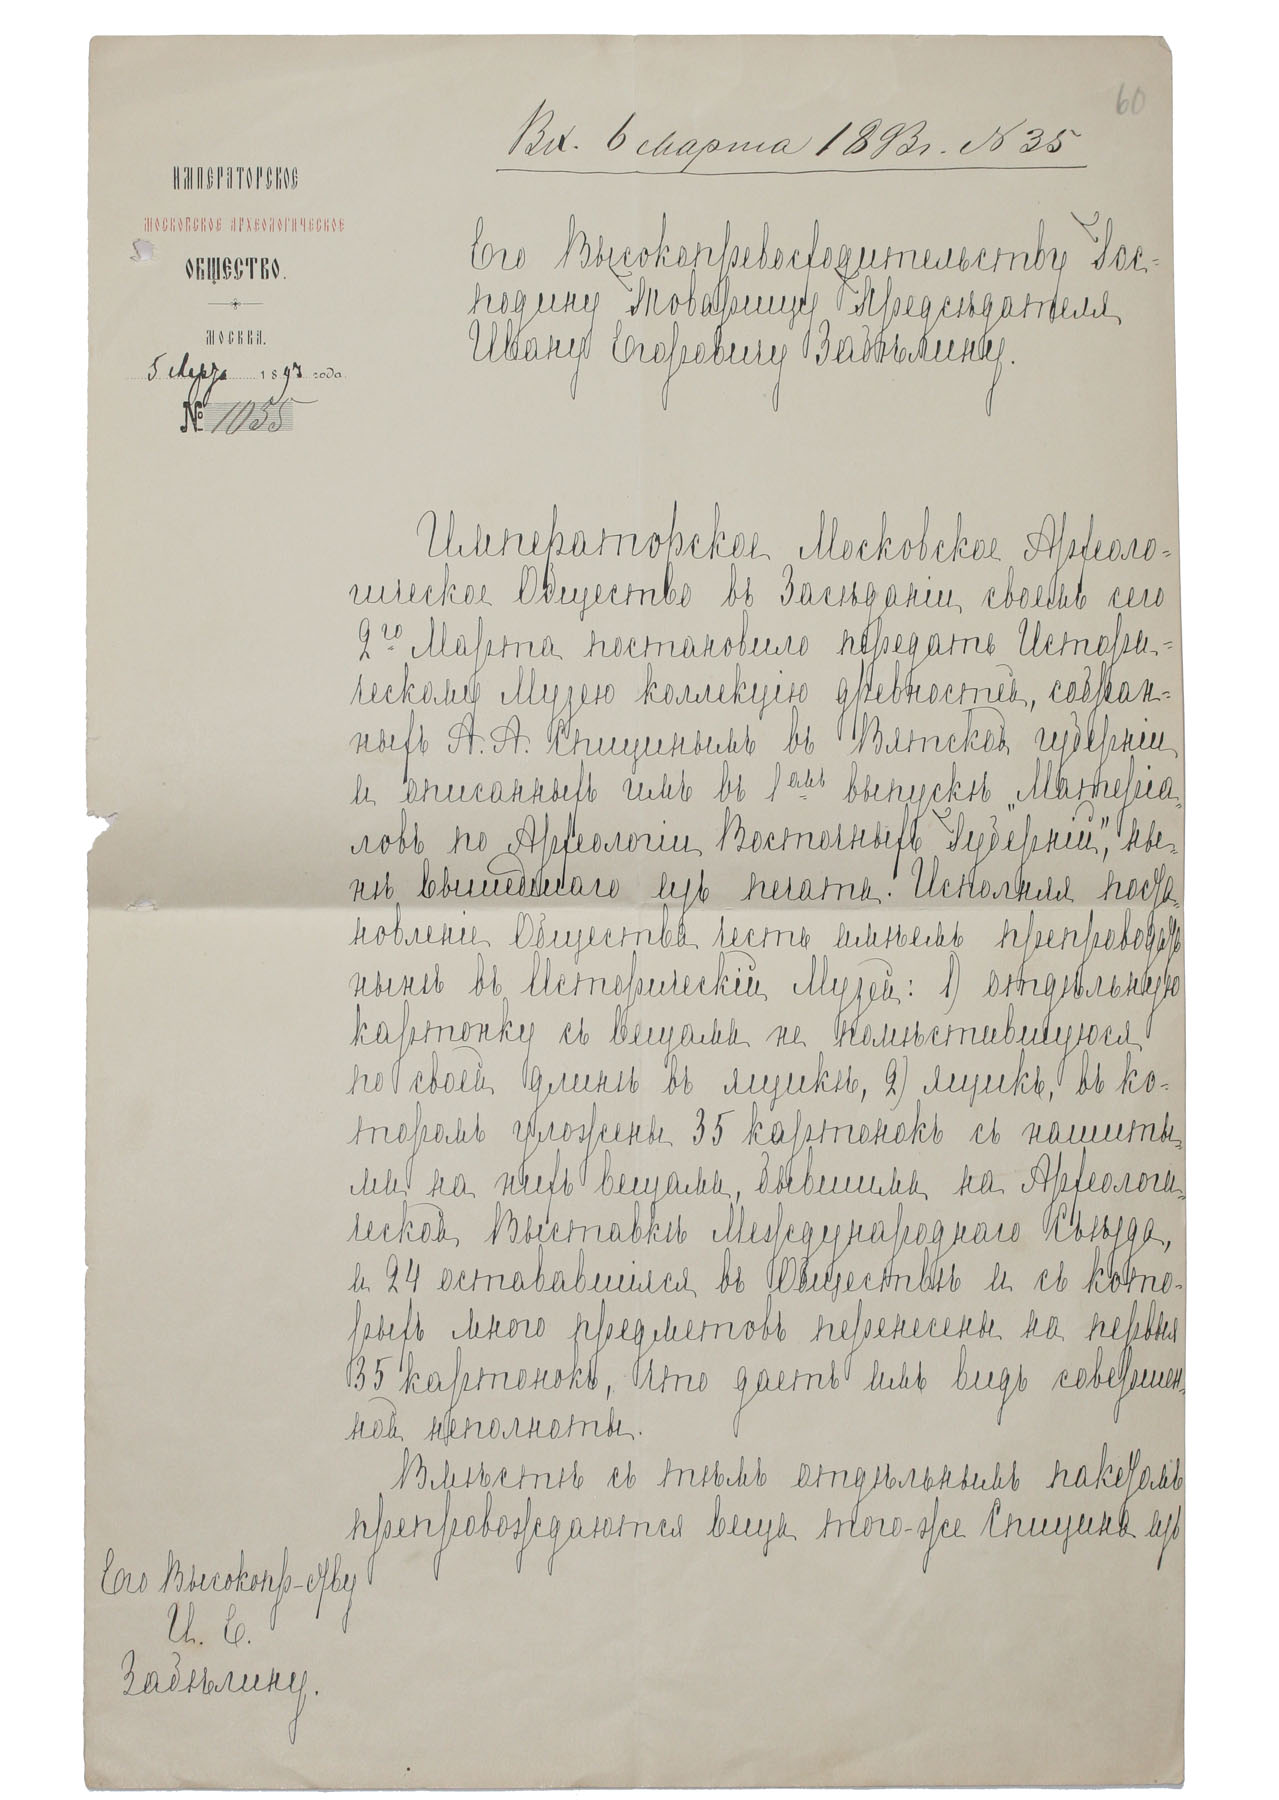 60
Вх. 6 марта 1893г. № 35
ИМПЕРАТОРСКОЕ
МОСКОВСКОЕ АРХЕОЛОГИЧЕСКОЕ
ОБЩЕСТВО.
МОСКВА.
5 Марта 1893 года.
№ 1055
Его Высокопревосходительству Гос-
подину Товарищу Предсѣдателя
Ивану Егоровичу Забѣлину.
Императорское Московское Архео­ло-
гическое Общество въ Засѣданіи своемъ сего
2го Марта постановило передать Истори-
ческому Музею коллекцію древностей, собран-
ныхъ А. А. Спицынымъ въ Вятской губерніи
и описанныхъ имъ въ 1омъ выпускѣ „Матеріа-
ловъ по Археологіи Восточныхъ Губерній", ны-
нѣ вышедшаго изъ печати. Исполняя поста-
новленіе Общества честь имѣемъ препроводить
нынѣ въ Историческій Музей: 1) отдѣльную
картонку съ вещами не помѣстившуюся
по своей длинѣ въ ящикѣ, 2) ящикъ, въ ко-
торомъ уложены 35 картонокъ съ нашиты-
ми на нихъ вещами, бывшими на Археологи-
ческой Выставкѣ Международнаго Съѣзда,
и 24 остававшіяся въ Обществѣ и съ кото-
рыхъ много предметовъ перенесены на первыя
35 картонокъ, что даетъ имъ видъ совершен-
ной неполноты.
Вмѣстѣ съ тѣмъ отдѣльнымъ пакетомъ
препровождаются вещи того-же Спицина изъ
Его Высокопр-ству
И. Е.
Забѣлину.